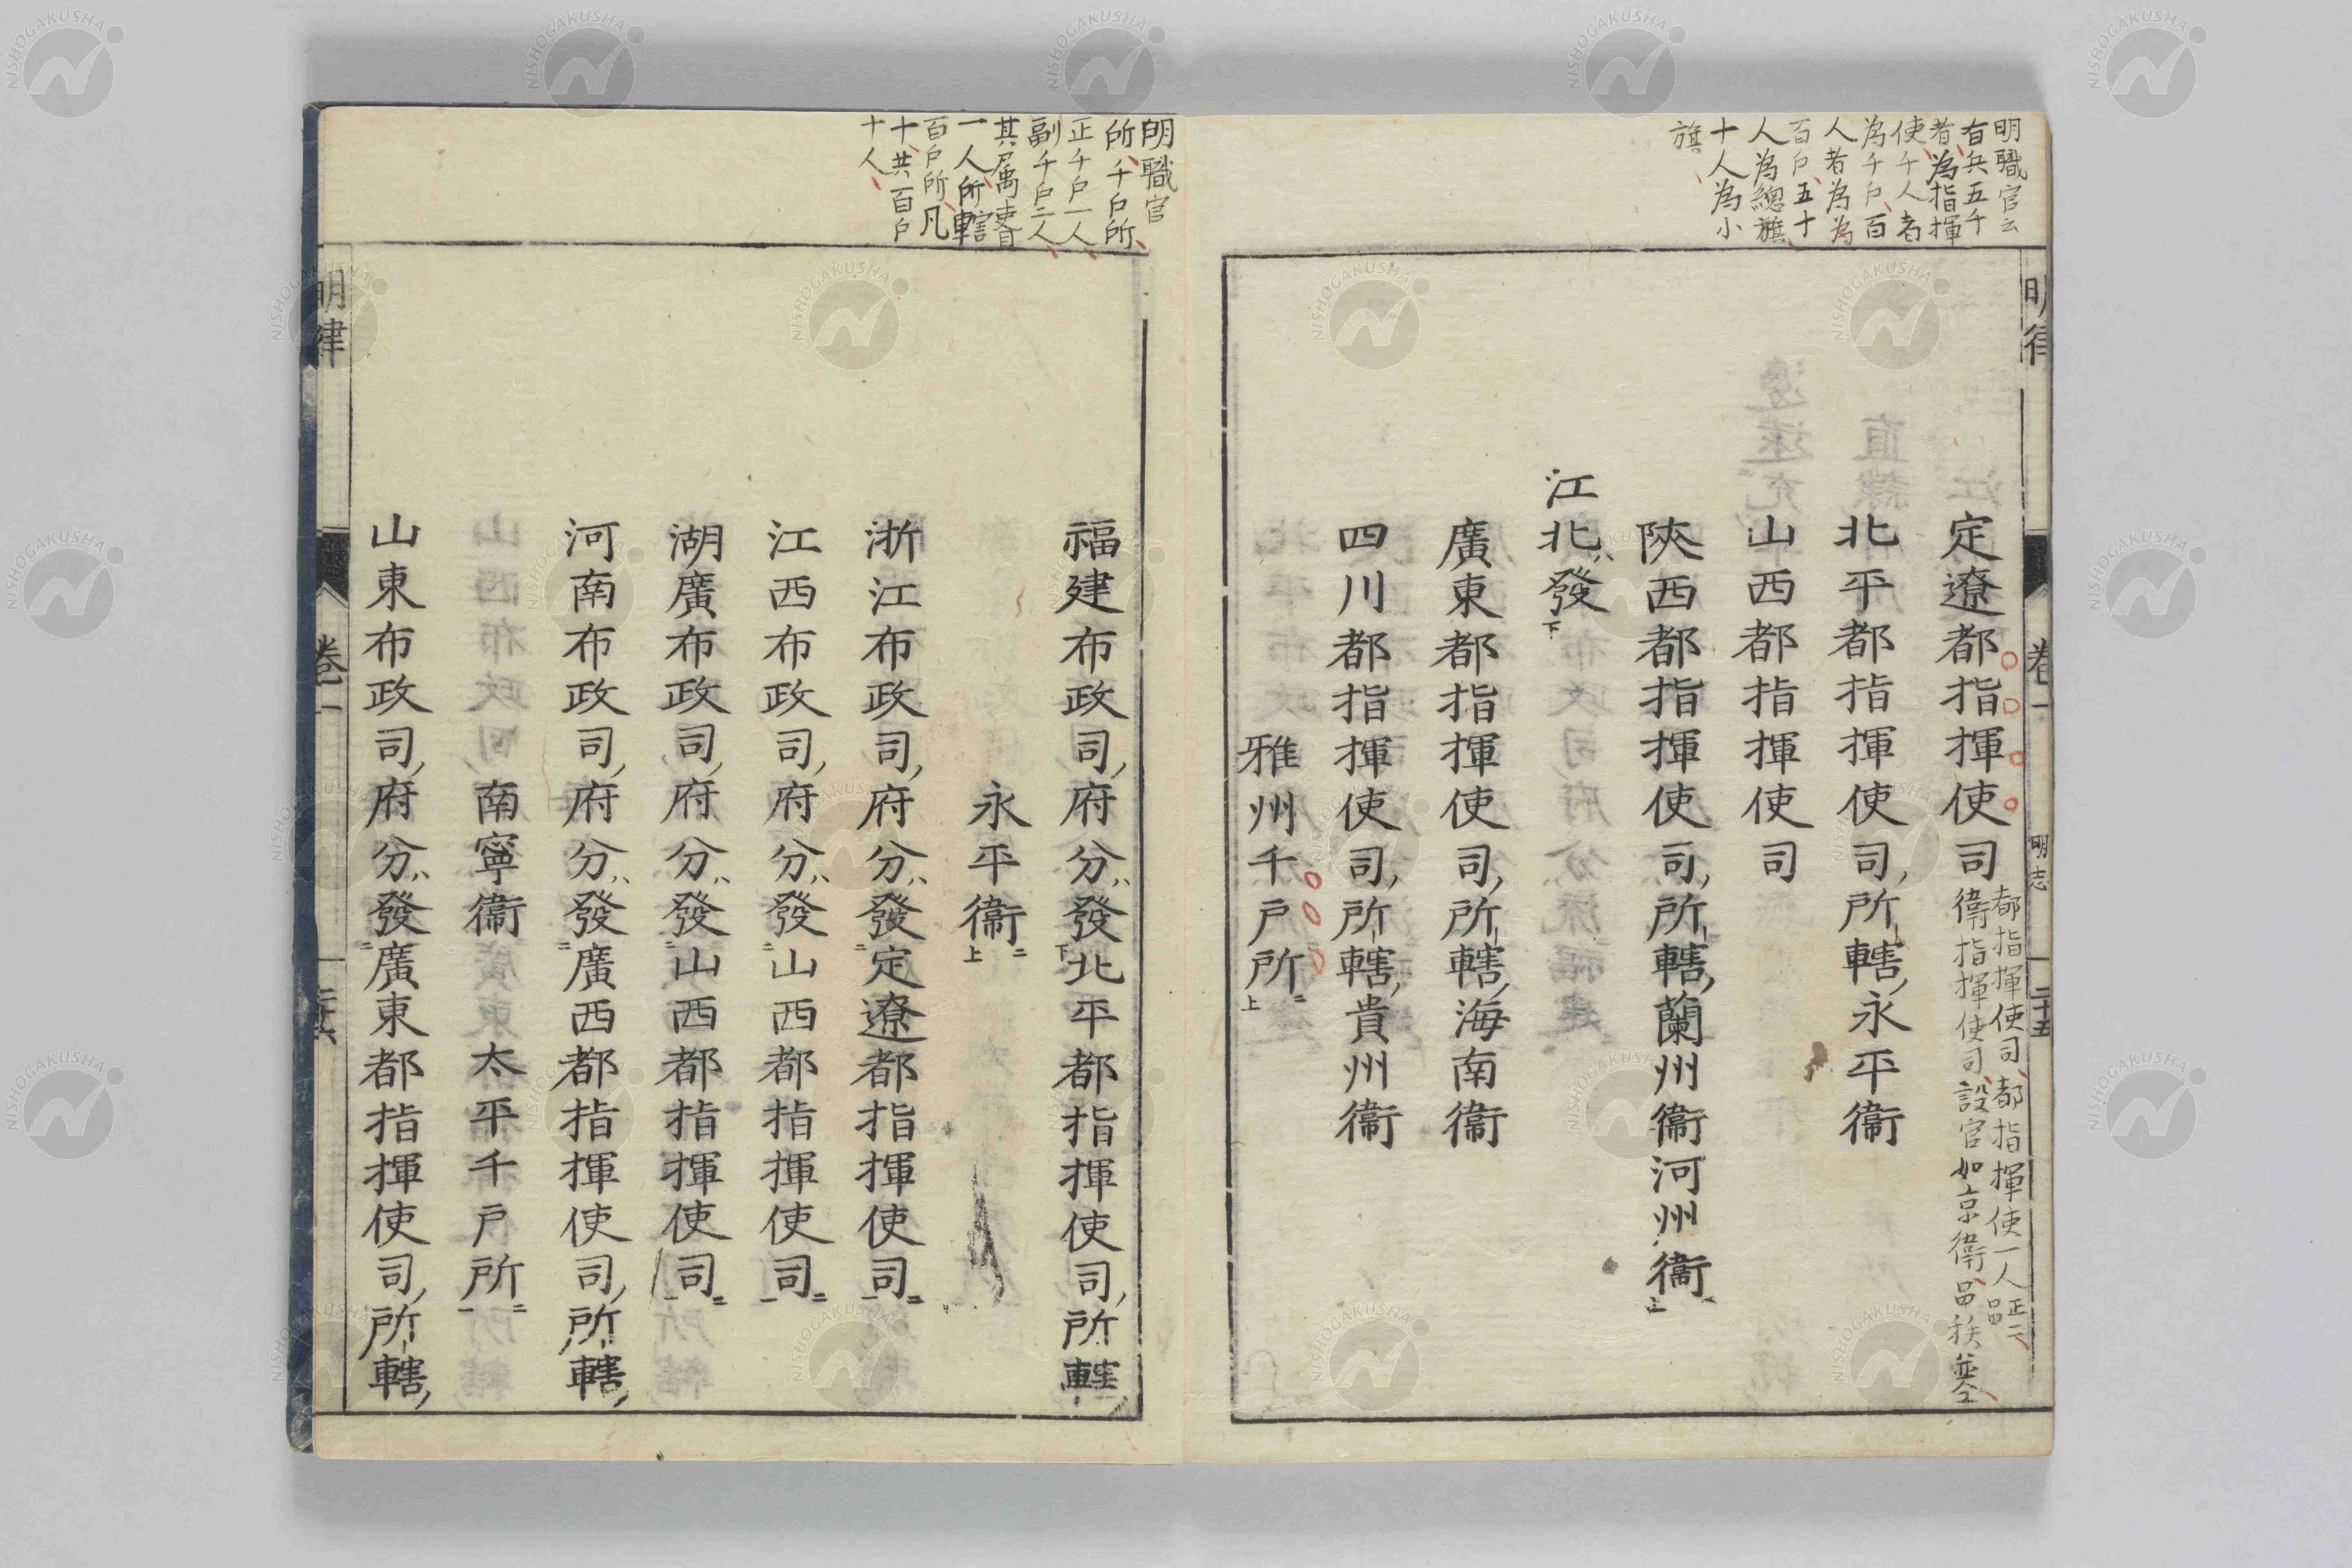 明職官云
有兵五千
者為指揮
使千人者
為千戶百
人者為為
百戶五十
人為總旗
十人為小
旗
明律
卷一
明志
二十五
定遼都指揮使司
都指揮使司都指揮使一人正二品
衛指揮使司設官如京衛品秩並仝
北平都指揮使司所轄永平衞
山西都指揮使司
陝西都指揮使司所轄蘭州衞河州衞
江北發
廣東都指揮使司所轄海南衞
四川都指揮使司所轄貴州衞
雅州千戶所
明職官
所千戶所
正千戶一人
副千戶二人
其屬吏目
一人所轄
百戶所凡
十共百戶
十人
福建布政司府分發北平都指揮使司所轄
永平衞
浙江布政司府分發定遼都指揮使司
江西布政司府分發山西都指揮使司
湖廣布政司府分發山西都指揮使司
河南布政司府分發廣西都指揮使司所轄
南寧衞 太平千戶所
山東布政司府分發廣東都指揮使司所轄
明律
卷一
二十六
NISHOGAKUSHA